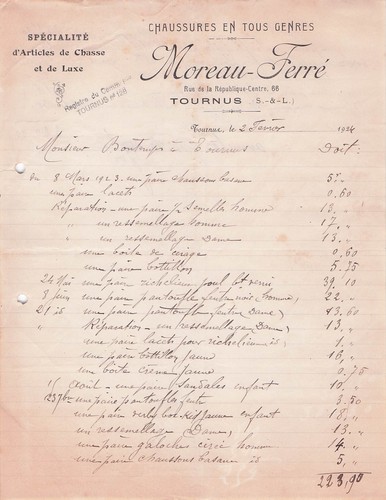 SPÉCIALITÉ
d'Articles de Chasse
et de Luxe
CHAUSSURES EN TOUS GENRES
Moreau-Ferré
Rue de la République-Centre, 66
TOURNUS (S.-&-L.)
Registre du Commerce
TOURNUS N° 128
Tournus, le 2 Février 1924
Monsieur Bontemps à Tournus Doit:
du 8 Mars 1923 une paire chaussons basane 5 "
une paire lacets 0.60
Réparation - une paire ½ semelle homme 13 "
" un ressemellage homme 17 "
" un ressemellage Dame 13 "
une boîte de cirage 0.60
une paire bottillon 5.35
24 Mai une paire richelieu boul bt verni 39.10
8 Juin une paire pantoufle feutre noir homme 22 "
21 is une paire pantoufle feutre Dame 13.60
" Réparation - un ressemellage Dame 13 "
une paire lacets pour richelieu is 1 "
une paire bottillon jaune 16 "
une boîte crème jaune 0.75
Août - une paire sandales enfant 10 "
une paire pantoufle feutre 3.50
une paire jaune enfant 18 "
un ressemellage Dame 13 "
une paire galoches ciré homme 14 "
une paire chaussons basane is 5 "
223,90